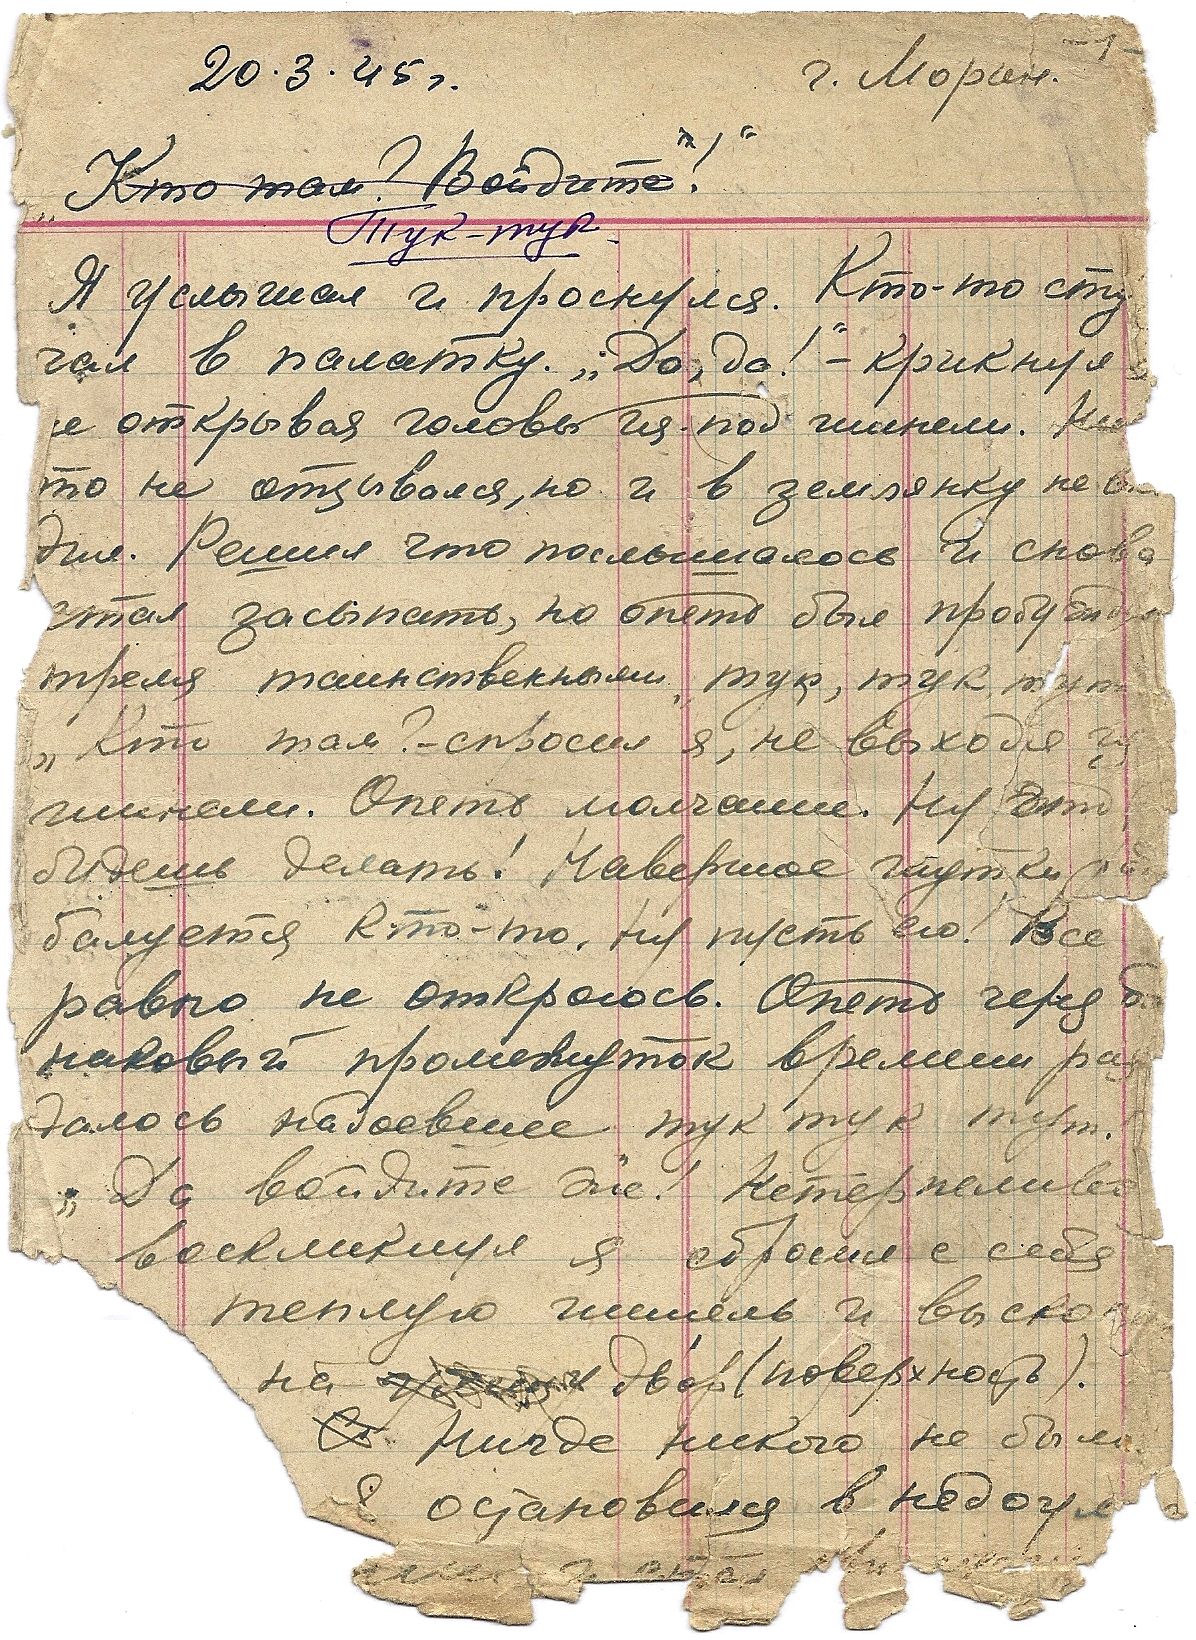 -1-
20.3.45 г. г. Морин.
„Кто там? Войдите"!"
Тук-тук
Я услышал и проснулся. Кто-то сту
чал в палатку. „Да, да!" - крикнул
не открывая головы из-под шинели. Ник
то не отзывался, но и в землянку не вхо
дил. Решил что послышалось и снова
стал засыпать, но опеть был пробужден
тремя таинственными „тук, тук тук
„Кто там? - спросил я, не выходя из
шинели. Опеть молчание. Ну что
будешь делать! Наверное шутки
балуется кто-то. Ну пусть его! Все
равно не откроюсь. Опеть через оди
наковый промежуток времени раз
далось надоевшее тук тук тук.
„Да войдите же! Нетерпеливо
воскликнул я сбросил с себя
теплую шинель и выско
на двор (поверхность).
Нигде никого не было.
Я остановился в недоум
и стал